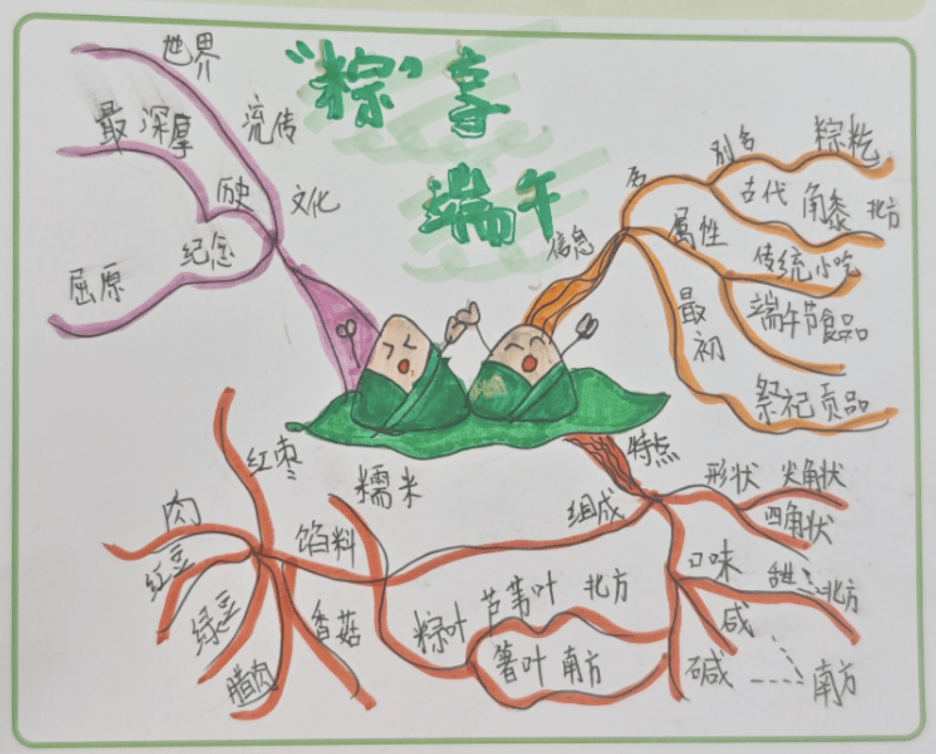 “粽”享
端午
世界
流传
最深厚
历史
文化
纪念
屈原
信息
名
别名
粽籺
古代
角黍
北方
属性
传统小吃
端午节食品
最初
祭祀贡品
特点
形状
尖角状
四角状
口味
甜
北方
咸
碱
南方
组成
糯米
馅料
红枣
肉
红豆
绿豆
腊肉
香菇
粽叶
芦苇叶
北方
箬叶
南方